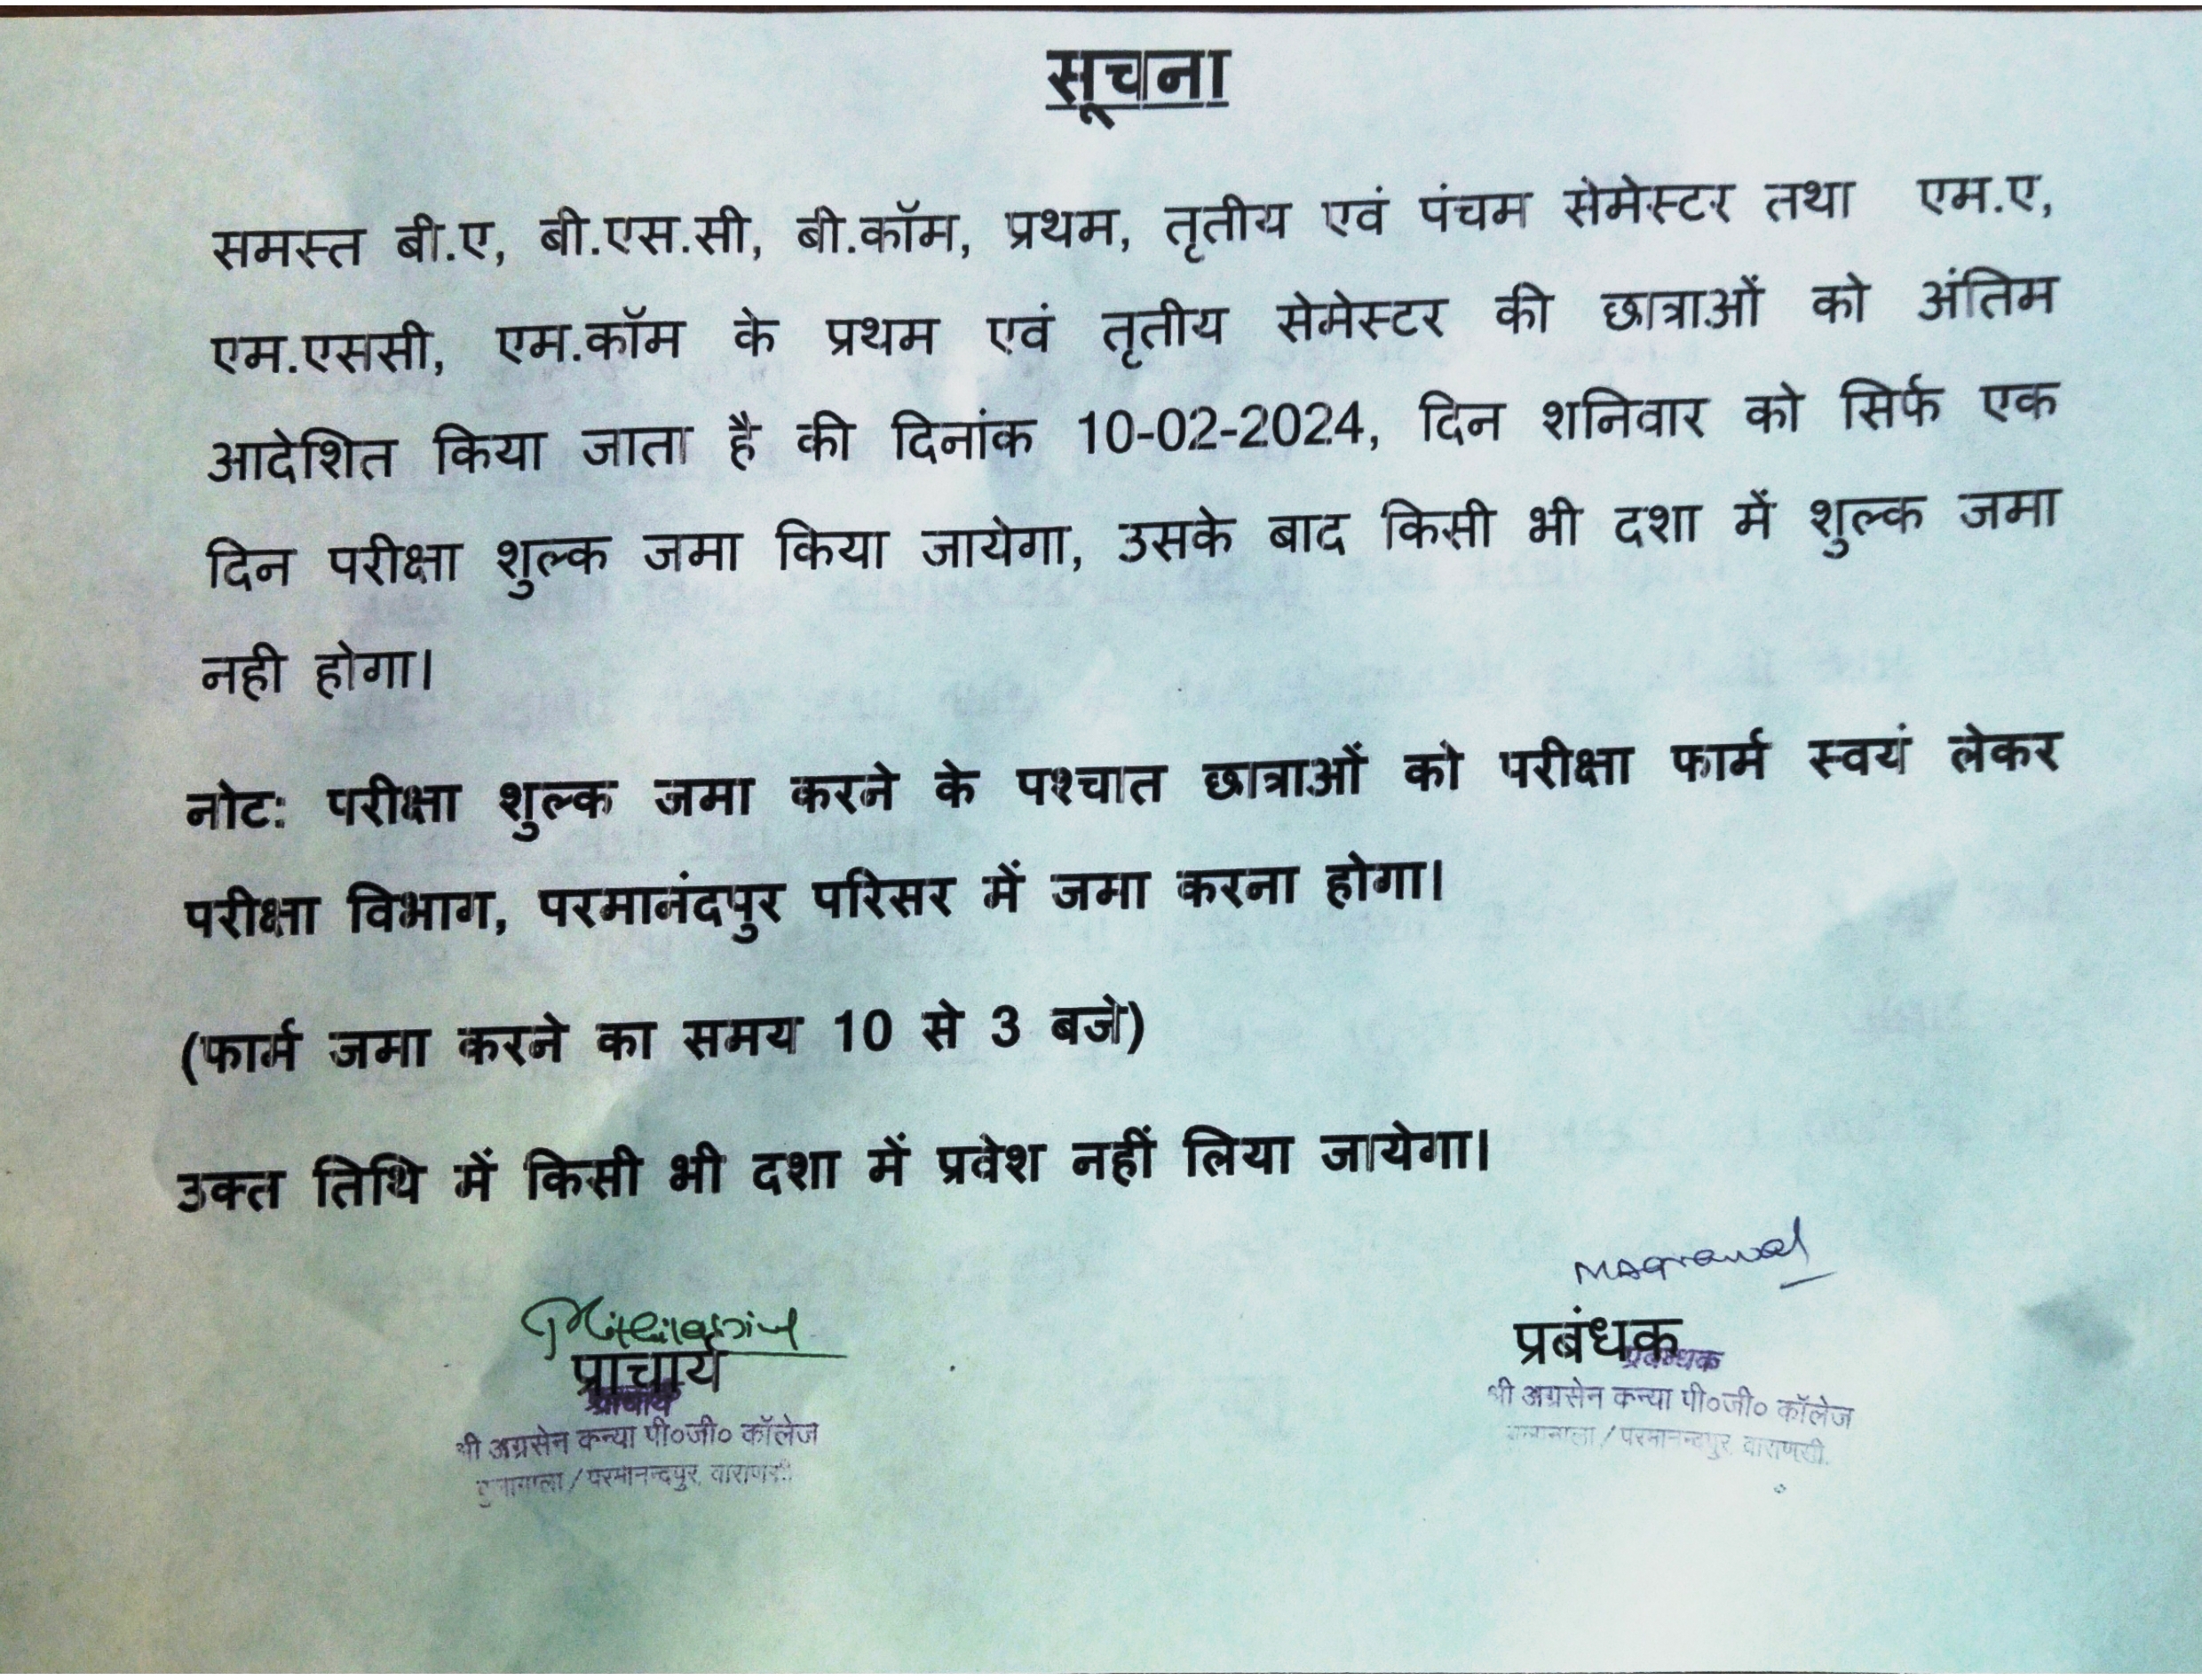 सूचना
समस्त बी.ए, बी.एस.सी, बी.कॉम, प्रथम, तृतीय एवं पंचम सेमेस्टर तथा एम.ए,
एम.एससी, एम.कॉम के प्रथम एवं तृतीय सेमेस्टर की छात्राओं को अंतिम
आदेशित किया जाता है की दिनांक 10-02-2024, दिन शनिवार को सिर्फ एक
दिन परीक्षा शुल्क जमा किया जायेगा, उसके बाद किसी भी दशा में शुल्क जमा
नही होगा।
नोट: परीक्षा शुल्क जमा करने के पश्चात छात्राओं को परीक्षा फार्म स्वयं लेकर
परीक्षा विभाग, परमानंदपुर परिसर में जमा करना होगा।
(फार्म जमा करने का समय 10 से 3 बजे)
उक्त तिथि में किसी भी दशा में प्रवेश नहीं लिया जायेगा।
MAgrawal
प्राचार्य
प्राचार्य
श्री अग्रसेन कन्या पी०जी० कॉलेज
/ परमानन्दपुर, वाराणसी
प्रबंधक
प्रबन्धक
श्री अग्रसेन कन्या पी०जी० कॉलेज
/ परमानन्दपुर, वाराणसी.